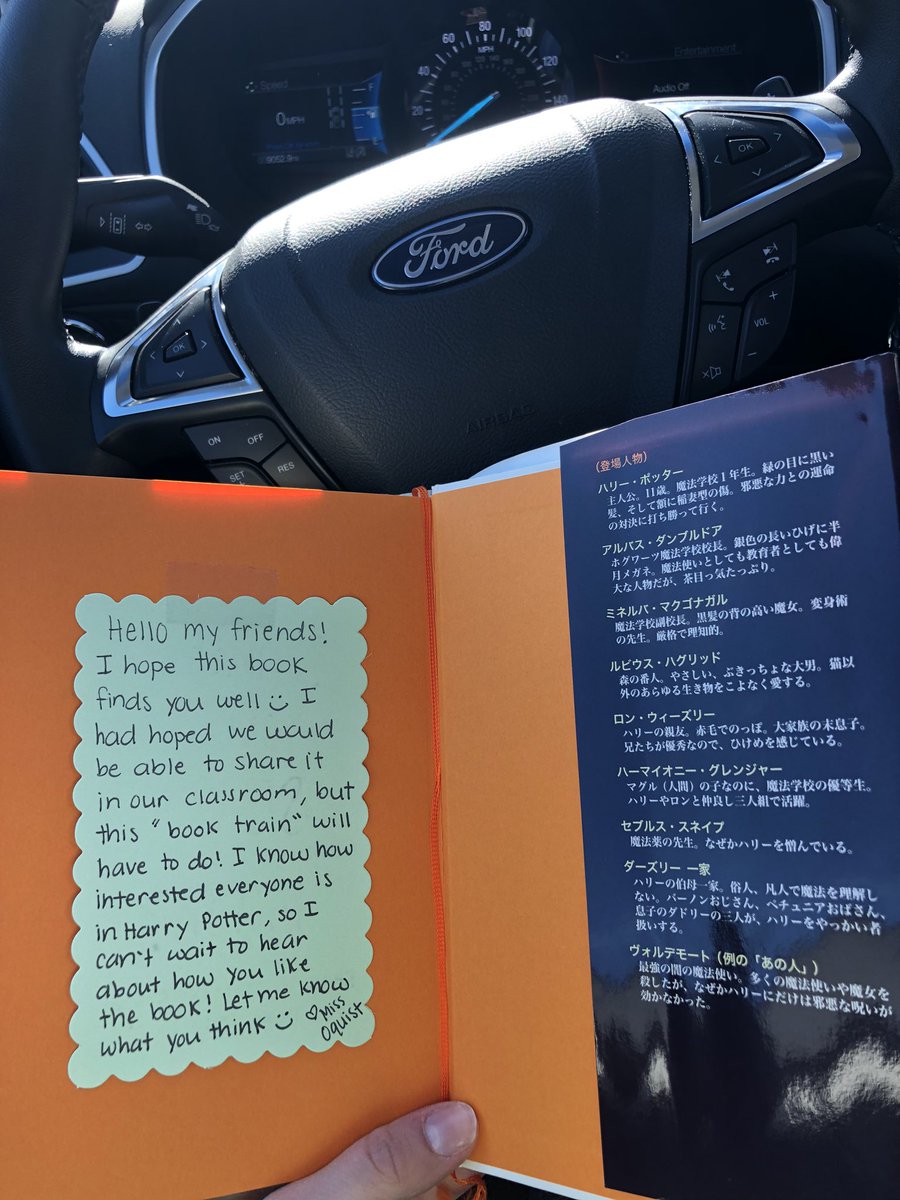 60
80
100
MPH
40
120
20
140
Speed
Entertainment
Audio Off
0 MPH
F
E
OK
Ford
OK
VOL
AIRBAG
ON
OFF
RES
SET
Hello my friends!
I hope this book
finds you well I
had hoped we would
be able to share it
in our classroom, but
this "book train" will
have to do! I know how
interested everyone is
in Harry Potter, so I
can't wait to hear
about how you like
the book! Let me know
what you think
♡Miss
Oquist
(登場人物)
ハリー・ポッター
主人公。11歳。魔法学校1年生。緑の目に黒い
髪、そして額に稲妻型の傷。邪悪な力との運命
の対決に打ち勝って行く。
アルバス・ダンブルドア
ホグワーツ魔法学校校長。銀色の長いひげに半
月メガネ。魔法使いとしても教育者としても偉
大な人物だが、茶目っ気たっぷり。
ミネルバ・マクゴナガル
魔法学校副校長。黒髪の背の高い魔女。変身術
の先生。厳格で理知的。
ルビウス・ハグリッド
森の番人。やさしい、ぶきっちょな大男。猫以
外のあらゆる生き物をこよなく愛する。
ロン・ウィーズリー
ハリーの親友。赤毛でのっぽ。大家族の末息子。
兄たちが優秀なので、ひけめを感じている。
ハーマイオニー・グレンジャー
マグル(人間)の子なのに、魔法学校の優等生。
ハリーやロンと仲良し三人組で活躍。
セブルス・スネイプ
魔法薬の先生。なぜかハリーを憎んでいる。
ダーズリー 一家
ハリーの伯母一家。俗人、凡人で魔法を理解し
ない。バーノンおじさん、ペチュニアおばさん、
息子のダドリーの三人が、ハリーをやっかい者
扱いする。
ヴォルデモート(例の「あの人」)
最強の闇の魔法使い。多くの魔法使いや魔女を
殺したが、なぜかハリーにだけは邪悪な呪いが
効かなかった。